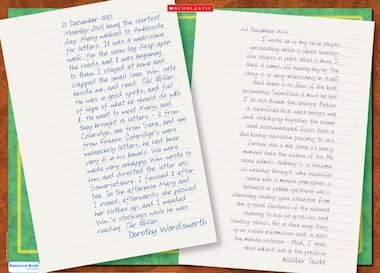 SCHOLASTIC
21 December 1801
Monday 21st, being the shortest
day. Mary walked to Ambleside
for letters. It was a wearisome
walk, for the snow lay deep upon
the roads and it was beginning
to thaw. I stayed at home and
clapped the small linen. Wm. sate
beside me, and read The Pedlar.
He was in good spirits, and full
of hope of what he should do with
it. He went to meet Mary, and
they brought 4 letters - 2 from
Coleridge, one from Sara, and one
from France. Coleridge's were
melancholy letters, he had been
very ill in his bowels. We were
made very unhappy. Wm. wrote to
him, and directed the letter into
Somersetshire. I finished it after
tea. In the afternoon Mary and
I ironed, afterwards she packed
her clothes up, and I mended
Wm.'s stockings while he was
reading The Pedlar.
Dorothy Wordsworth
22 December 1825
I wrote six of my close pages
yesterday, which is about twenty-
four pages in print. What is more I
think it comes off twangingly. The
story is so very interesting in itself
that there is no fear of the book
answering. Superficial it must be, but
I do not disown the charge. Better
a superficial book, which brings well
and strikingly together the known
and acknowledged facts, than a
dull boring narrative, pausing to see
further into a mill stone at every
moment than the nature of the Mill
stone admits. Nothing is so tiresome
as walking through some beautiful
scene with a minute philosopher, a
botanist or pebble gatherer who is
eternally calling your attention from
the grand features of the natural
scenery to look at grasses and
chucky stones. Yet in their way, they
give useful information and so does
the minute historian - Gad, I think
that will look well in the preface.
Walter Scott
Resource Bank